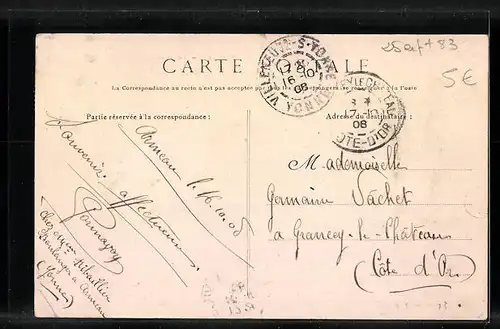 25 sept 83
5€
CARTE POSTALE
La Correspondance au recto n'est pas acceptée par tous les pays étrangers (se renseigner à la Poste)
Partie réservée à la correspondance:
Adresse du destinataire:
VILLENEUVE-S-YONNE
16 -10
08
YONNE
17-10
08
COTE-D'OR
Armeau l. 16.10.08
Souvenir
affectueux
Chez
Boulanger à Armeau
(Yonne)
Mademoiselle
Germaine Vachet
à Grancey-le-Château
(Côte d'Or)